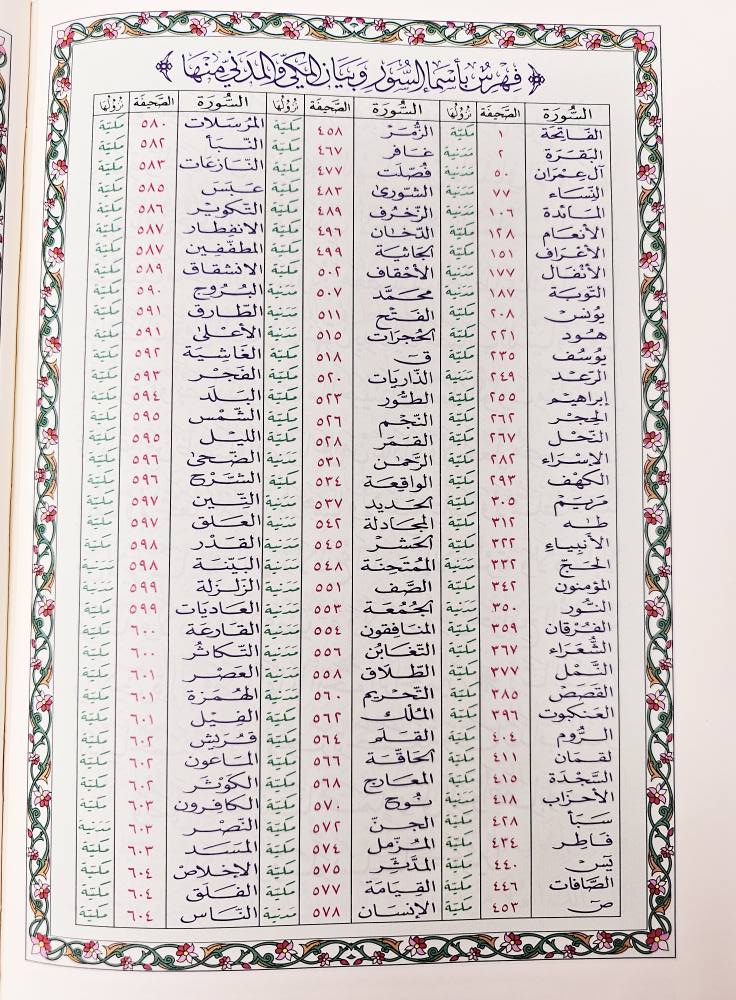 فهرس بأسماء السور وبيان المكي والمدني منها
السورة الصحيفة نزولها
الفاتحة ١ مكية
البقرة ٢ مدنية
آل عمران ٥٠ مدنية
النساء ٧٧ مدنية
المائدة ١٠٦ مدنية
الأنعام ١٢٨ مكية
الأعراف ١٥١ مكية
الأنفال ١٧٧ مدنية
التوبة ١٨٧ مدنية
يونس ٢٠٨ مكية
هود ٢٢١ مكية
يوسف ٢٣٥ مكية
الرعد ٢٤٩ مدنية
إبراهيم ٢٥٥ مكية
الحجر ٢٦٢ مكية
النحل ٢٦٧ مكية
الإسراء ٢٨٢ مكية
الكهف ٢٩٣ مكية
مريم ٣٠٥ مكية
طه ٣١٢ مكية
الأنبياء ٣٢٢ مكية
الحج ٣٣٢ مدنية
المؤمنون ٣٤٢ مكية
النور ٣٥٠ مدنية
الفرقان ٣٥٩ مكية
الشعراء ٣٦٧ مكية
النمل ٣٧٧ مكية
القصص ٣٨٥ مكية
العنكبوت ٣٩٦ مكية
الروم ٤٠٤ مكية
لقمان ٤١١ مكية
السجدة ٤١٥ مكية
الأحزاب ٤١٨ مدنية
سبأ ٤٢٨ مكية
فاطر ٤٣٤ مكية
يس ٤٤٠ مكية
الصافات ٤٤٦ مكية
ص ٤٥٣ مكية
السورة الصحيفة نزولها
الزمر ٤٥٨ مكية
غافر ٤٦٧ مكية
فصلت ٤٧٧ مكية
الشورى ٤٨٣ مكية
الزخرف ٤٨٩ مكية
الدخان ٤٩٦ مكية
الجاثية ٤٩٩ مكية
الأحقاف ٥٠٢ مكية
محمد ٥٠٧ مدنية
الفتح ٥١١ مدنية
الحجرات ٥١٥ مدنية
ق ٥١٨ مكية
الذاريات ٥٢٠ مكية
الطور ٥٢٣ مكية
النجم ٥٢٦ مكية
القمر ٥٢٨ مكية
الرحمن ٥٣١ مدنية
الواقعة ٥٣٤ مكية
الحديد ٥٣٧ مدنية
المجادلة ٥٤٢ مدنية
الحشر ٥٤٥ مدنية
الممتحنة ٥٤٨ مدنية
الصف ٥٥١ مدنية
الجمعة ٥٥٣ مدنية
المنافقون ٥٥٤ مدنية
التغابن ٥٥٦ مدنية
الطلاق ٥٥٨ مدنية
التحريم ٥٦٠ مدنية
الملك ٥٦٢ مكية
القلم ٥٦٤ مكية
الحاقة ٥٦٦ مكية
المعارج ٥٦٨ مكية
نوح ٥٧٠ مكية
الجن ٥٧٢ مكية
المزمل ٥٧٤ مكية
المدثر ٥٧٥ مكية
القيامة ٥٧٧ مكية
الإنسان ٥٧٨ مدنية
السورة الصحيفة نزولها
المرسلات ٥٨٠ مكية
النبأ ٥٨٢ مكية
النازعات ٥٨٣ مكية
عبس ٥٨٥ مكية
التكوير ٥٨٦ مكية
الانفطار ٥٨٧ مكية
المطففين ٥٨٧ مكية
الانشقاق ٥٨٩ مكية
البروج ٥٩٠ مكية
الطارق ٥٩١ مكية
الأعلى ٥٩١ مكية
الغاشية ٥٩٢ مكية
الفجر ٥٩٣ مكية
البلد ٥٩٤ مكية
الشمس ٥٩٥ مكية
الليل ٥٩٥ مكية
الضحى ٥٩٦ مكية
الشرح ٥٩٦ مكية
التين ٥٩٧ مكية
العلق ٥٩٧ مكية
القدر ٥٩٨ مكية
البينة ٥٩٨ مدنية
الزلزلة ٥٩٩ مدنية
العاديات ٥٩٩ مكية
القارعة ٦٠٠ مكية
التكاثر ٦٠٠ مكية
العصر ٦٠١ مكية
الهمزة ٦٠١ مكية
الفيل ٦٠١ مكية
قريش ٦٠٢ مكية
الماعون ٦٠٢ مكية
الكوثر ٦٠٢ مكية
الكافرون ٦٠٣ مكية
النصر ٦٠٣ مدنية
المسد ٦٠٣ مكية
الإخلاص ٦٠٤ مكية
الفلق ٦٠٤ مكية
الناس ٦٠٤ مكية